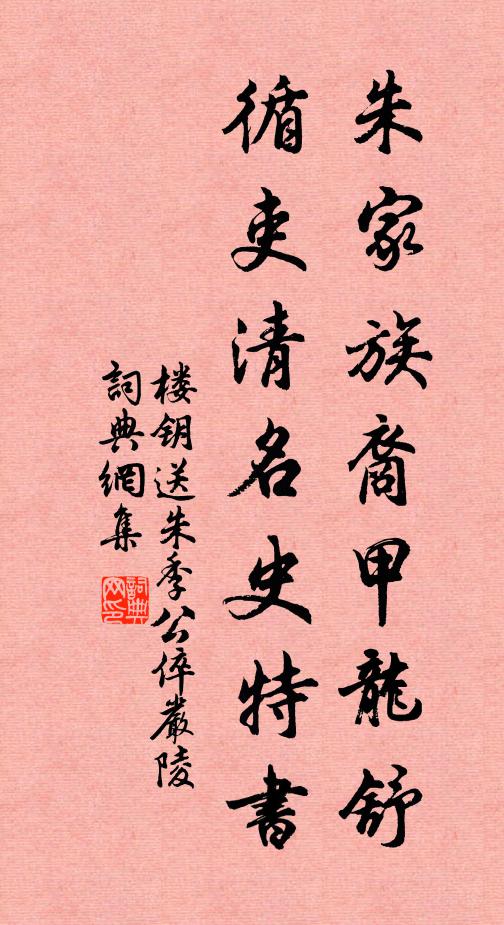 朱家族裔甲龍舒
循吏清名史特書
楼钥送朱季公倅嚴陵
詞典網集
詞典网印